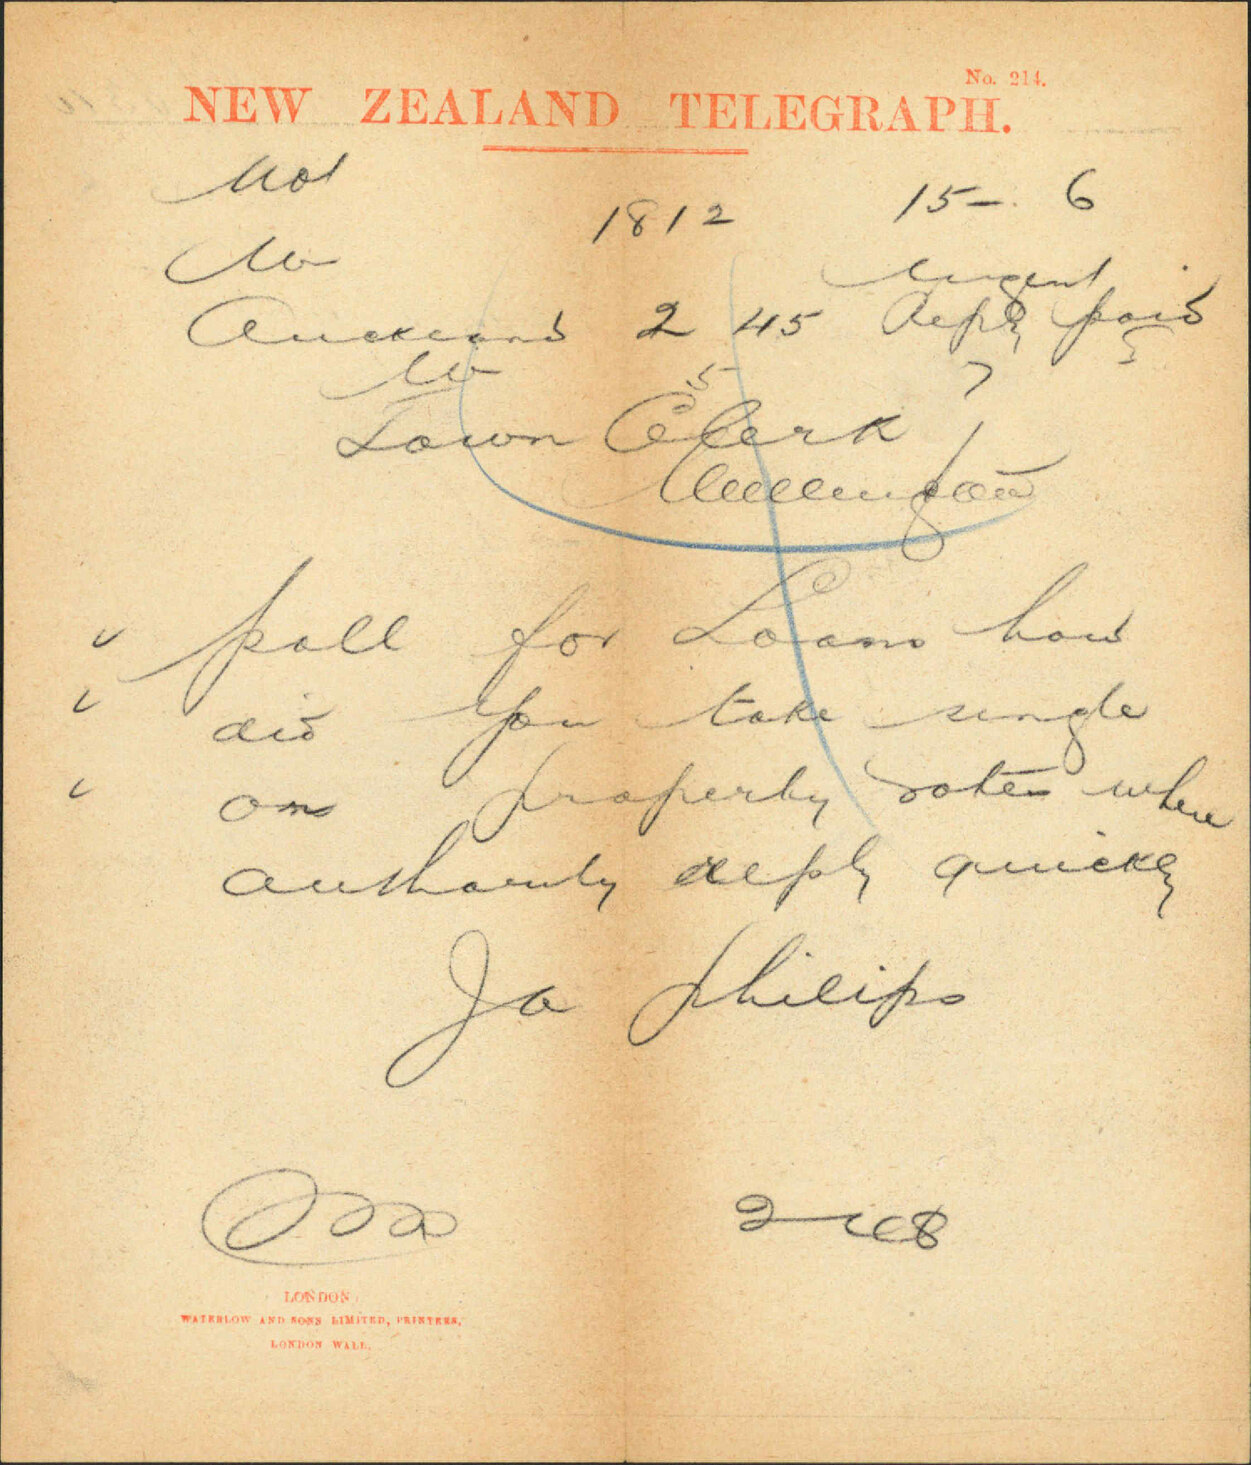 No. 214.
NEW ZEALAND TELEGRAPH.
1812 15 - 6
Urgent
Auckland 2 45 Reply paid
5 7
Town Clerk
Wellington
poll for Loans how
did you take single
or property votes where
authority reply quickly
Ja Philips
LONDON
WATERLOW AND SONS LIMITED, PRINTERS,
LONDON WALL.